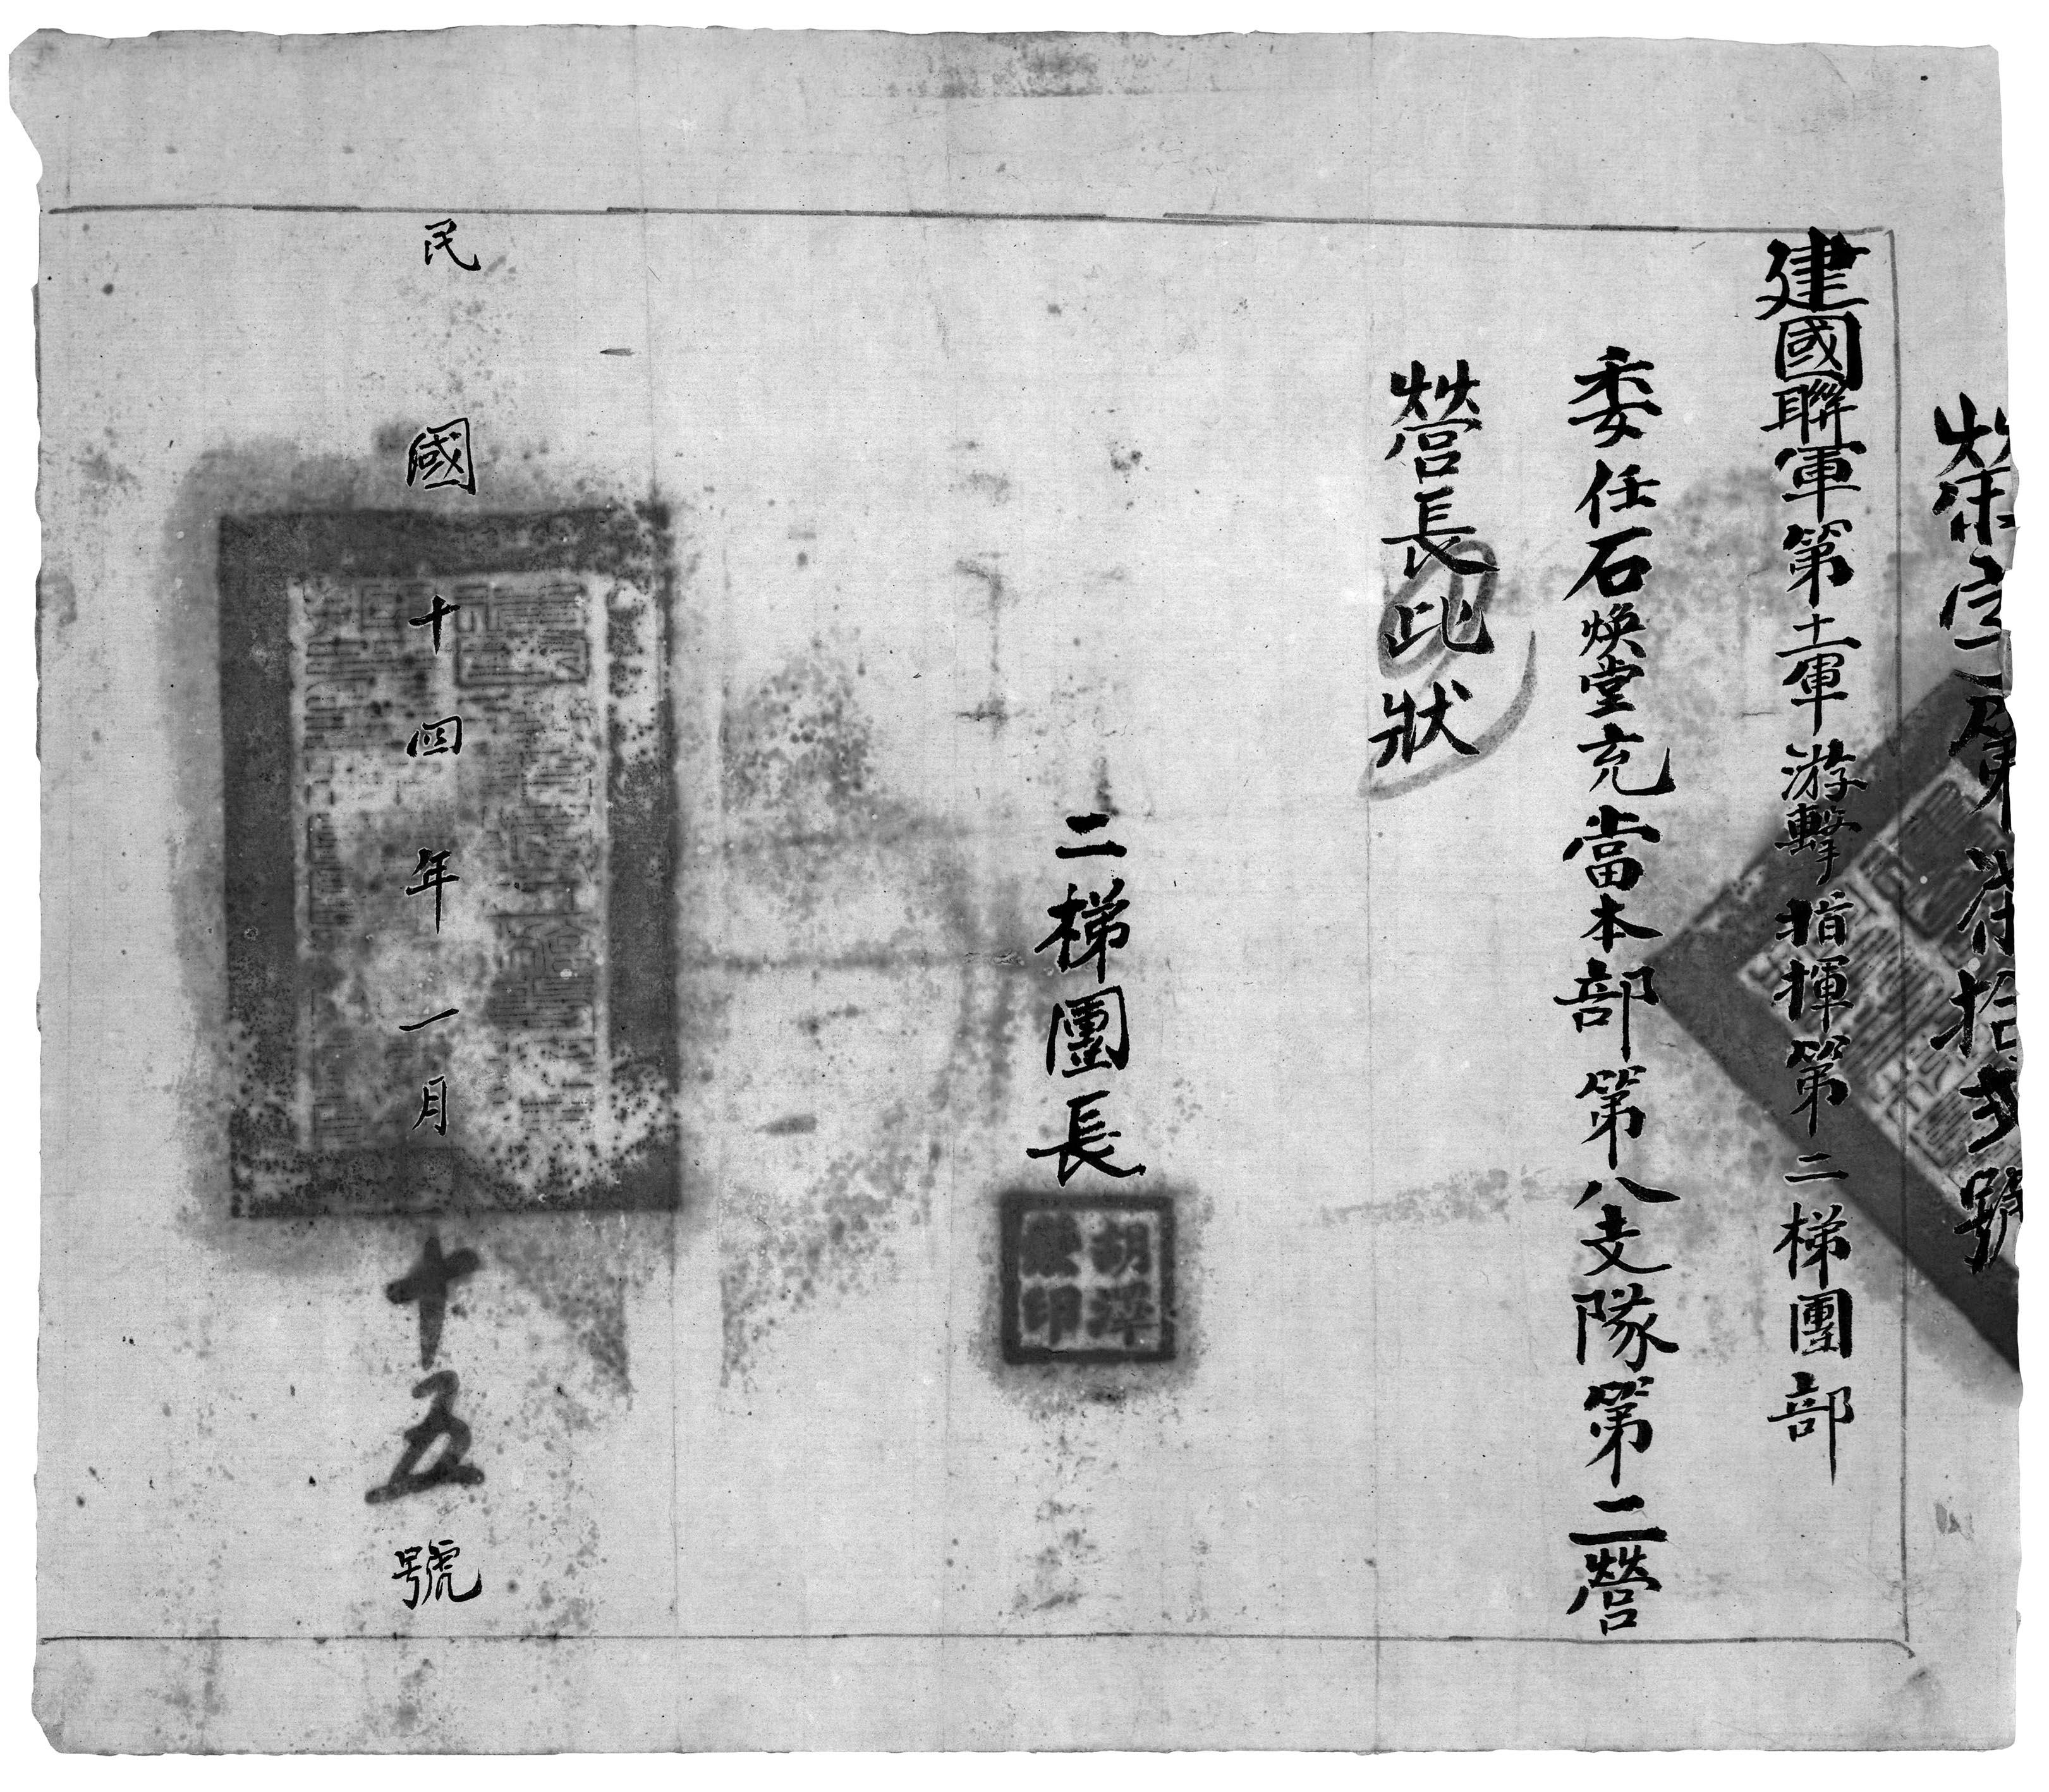 榮字第 拾弍號
建國聯軍第十一軍游擊指揮第二梯團部
委任石煥堂充當本部第八支隊第二營
營長此狀
二梯團長
民國十四年一月十五號